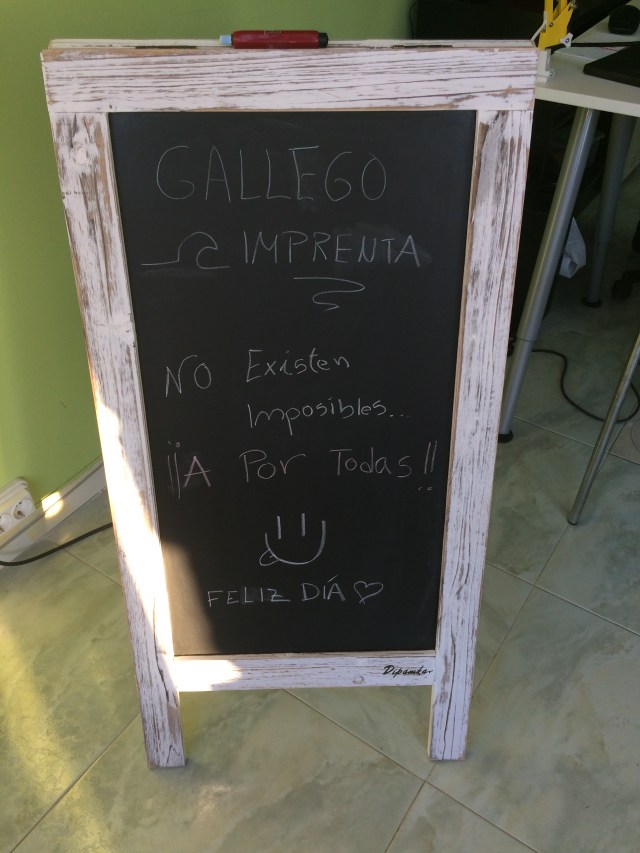 GALLEGO
IMPRENTA
NO Existen
Imposibles...
¡¡A Por Todas!!
FELIZ DÍÁ